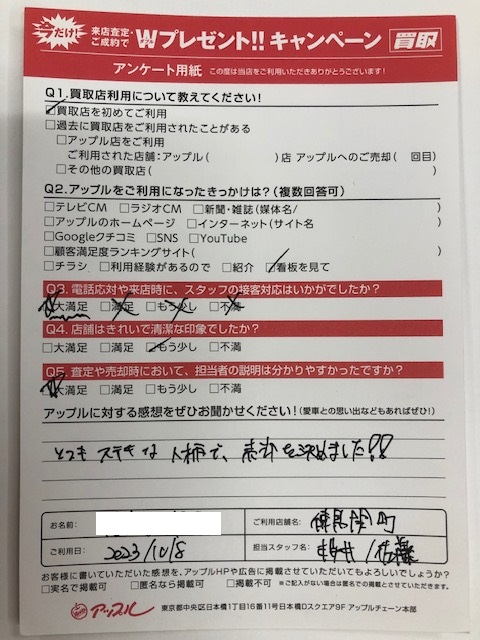 だけ!
来店査定・
ご成約で
Wプレゼント!!キャンペーン
買取
アンケート用紙 この度は当店をご利用いただきありがとうございます!
Q1.買取店利用について教えてください!
☑買取店を初めてご利用
□過去に買取店をご利用されたことがある
□アップル店をご利用
ご利用された店舗:アップル( )店 アップルへのご売却( 回目)
□その他の買取店( )
Q2.アップルをご利用になったきっかけは?(複数回答可)
□テレビCM □ラジオCM □新聞・雑誌(媒体名/ )
□アップルのホームページ □インターネット(サイト名 )
□Googleクチコミ □SNS □YouTube
□顧客満足度ランキングサイト( )
□チラシ □利用経験があるので □紹介 ☑看板を見て
Q3.電話応対や来店時に、スタッフの接客対応はいかがでしたか?
☑大満足 □満足 □もう少し □不満
Q4.店舗はきれいで清潔な印象でしたか?
□大満足 □満足 ☑もう少し □不満
Q5.査定や売却時において、担当者の説明は分かりやすかったですか?
☑大満足 □満足 □もう少し □不満
アップルに対する感想をぜひお聞かせください!(愛車との思い出などもあればぜひ!)
とてもステキな人柄で、売却を決めました!!
お名前:
ご利用店舗名: 練馬関町
ご利用日: 2023/10/8
担当スタッフ名: /佐藤
お客様に書いていただいた感想を、アップルHPや広告に掲載させていただいてもよろしいでしょうか?
□実名で掲載可 □匿名なら掲載可 □掲載不可 ※ご記入がない場合は匿名での掲載とさせていただきます。
アップル 東京都中央区日本橋1丁目16番11号日本橋Dスクエア9F アップルチェーン本部